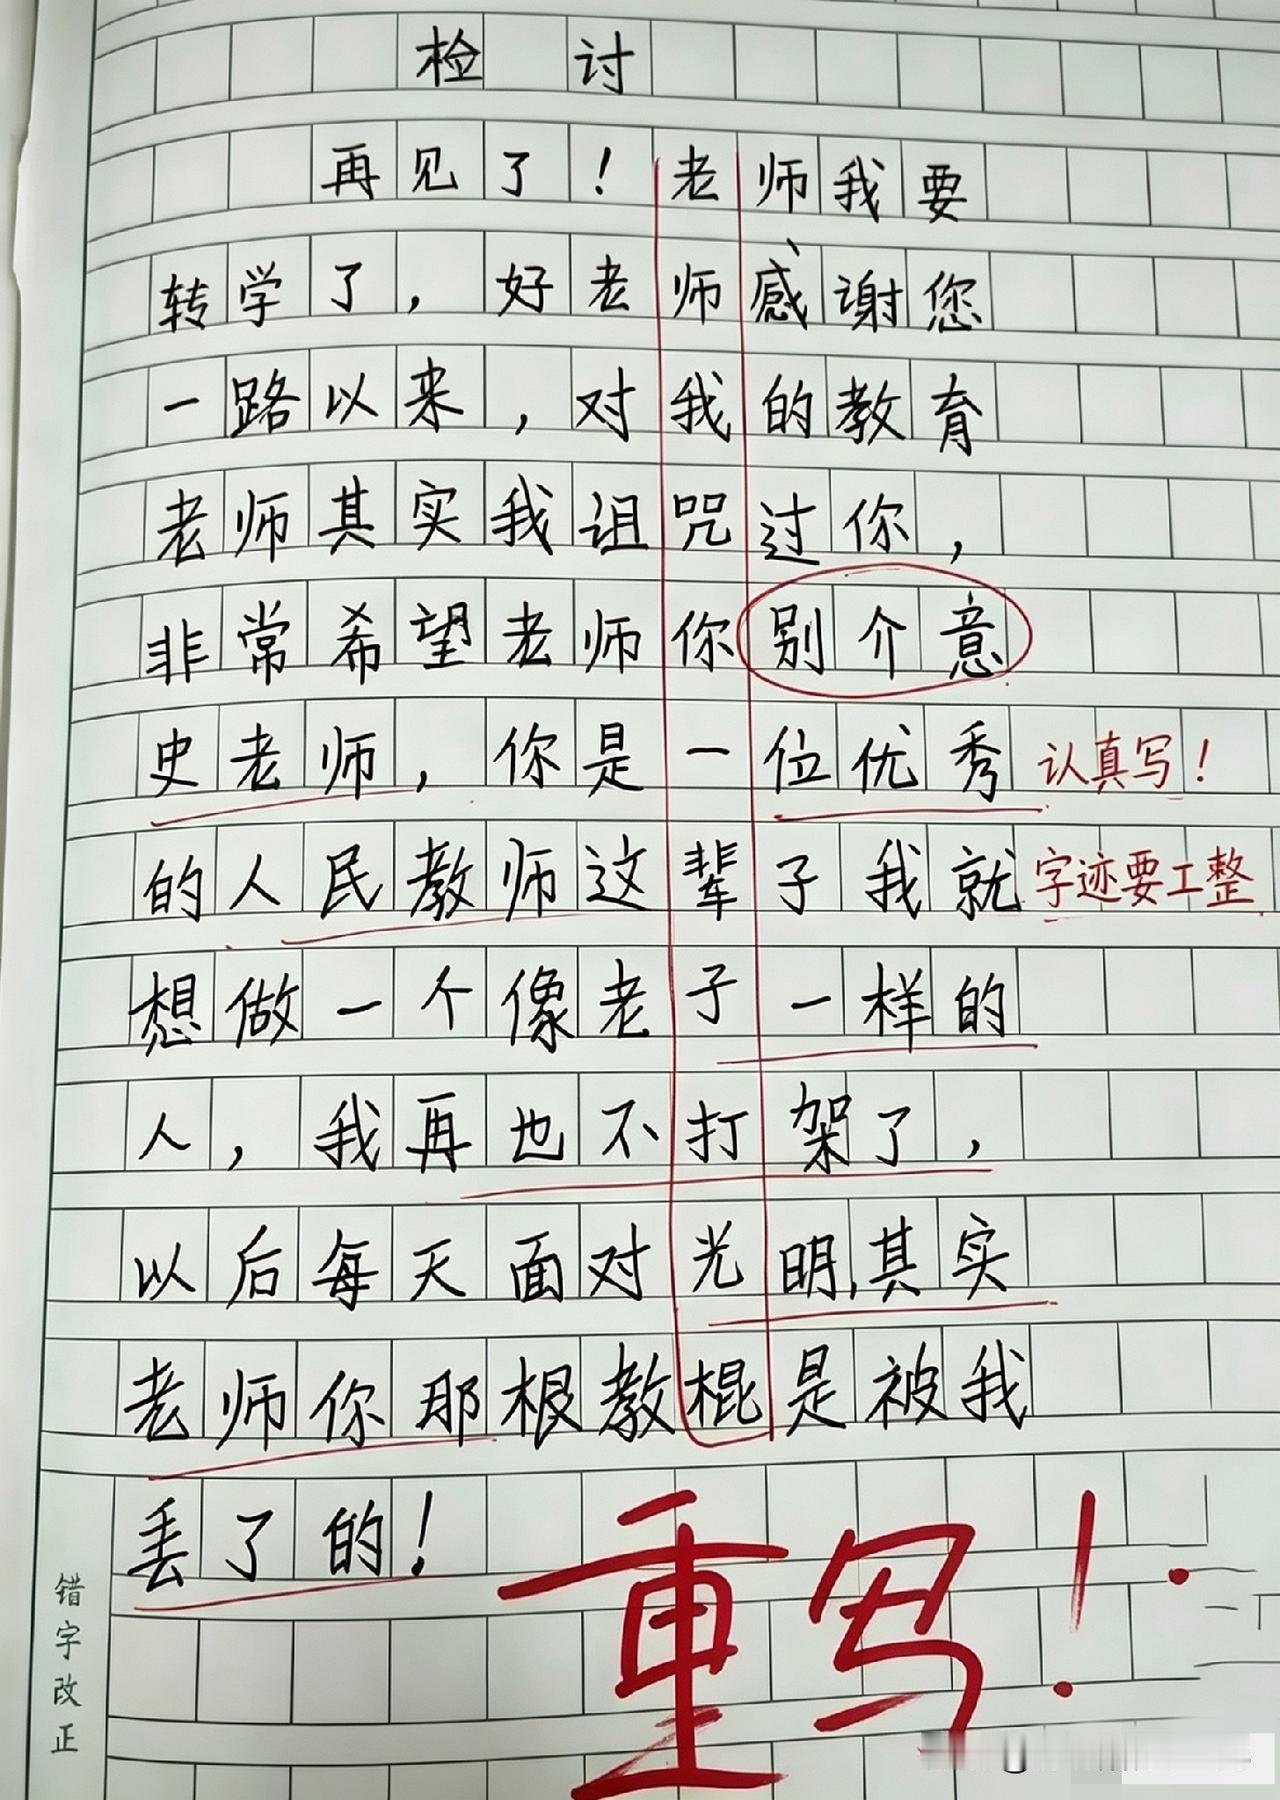 检讨
再见了！老师我要
转学了，好老师感谢您
一路以来，对我的教育
老师其实我诅咒过你，
非常希望老师你别介意
史老师，你是一位优秀
认真写！
的人民教师这辈子我就
字迹要工整
想做一个像老子一样的
人，我再也不打架了，
以后每天面对光明，其实
老师你那根教棍是被我
丢了的！
重写！
错字改正